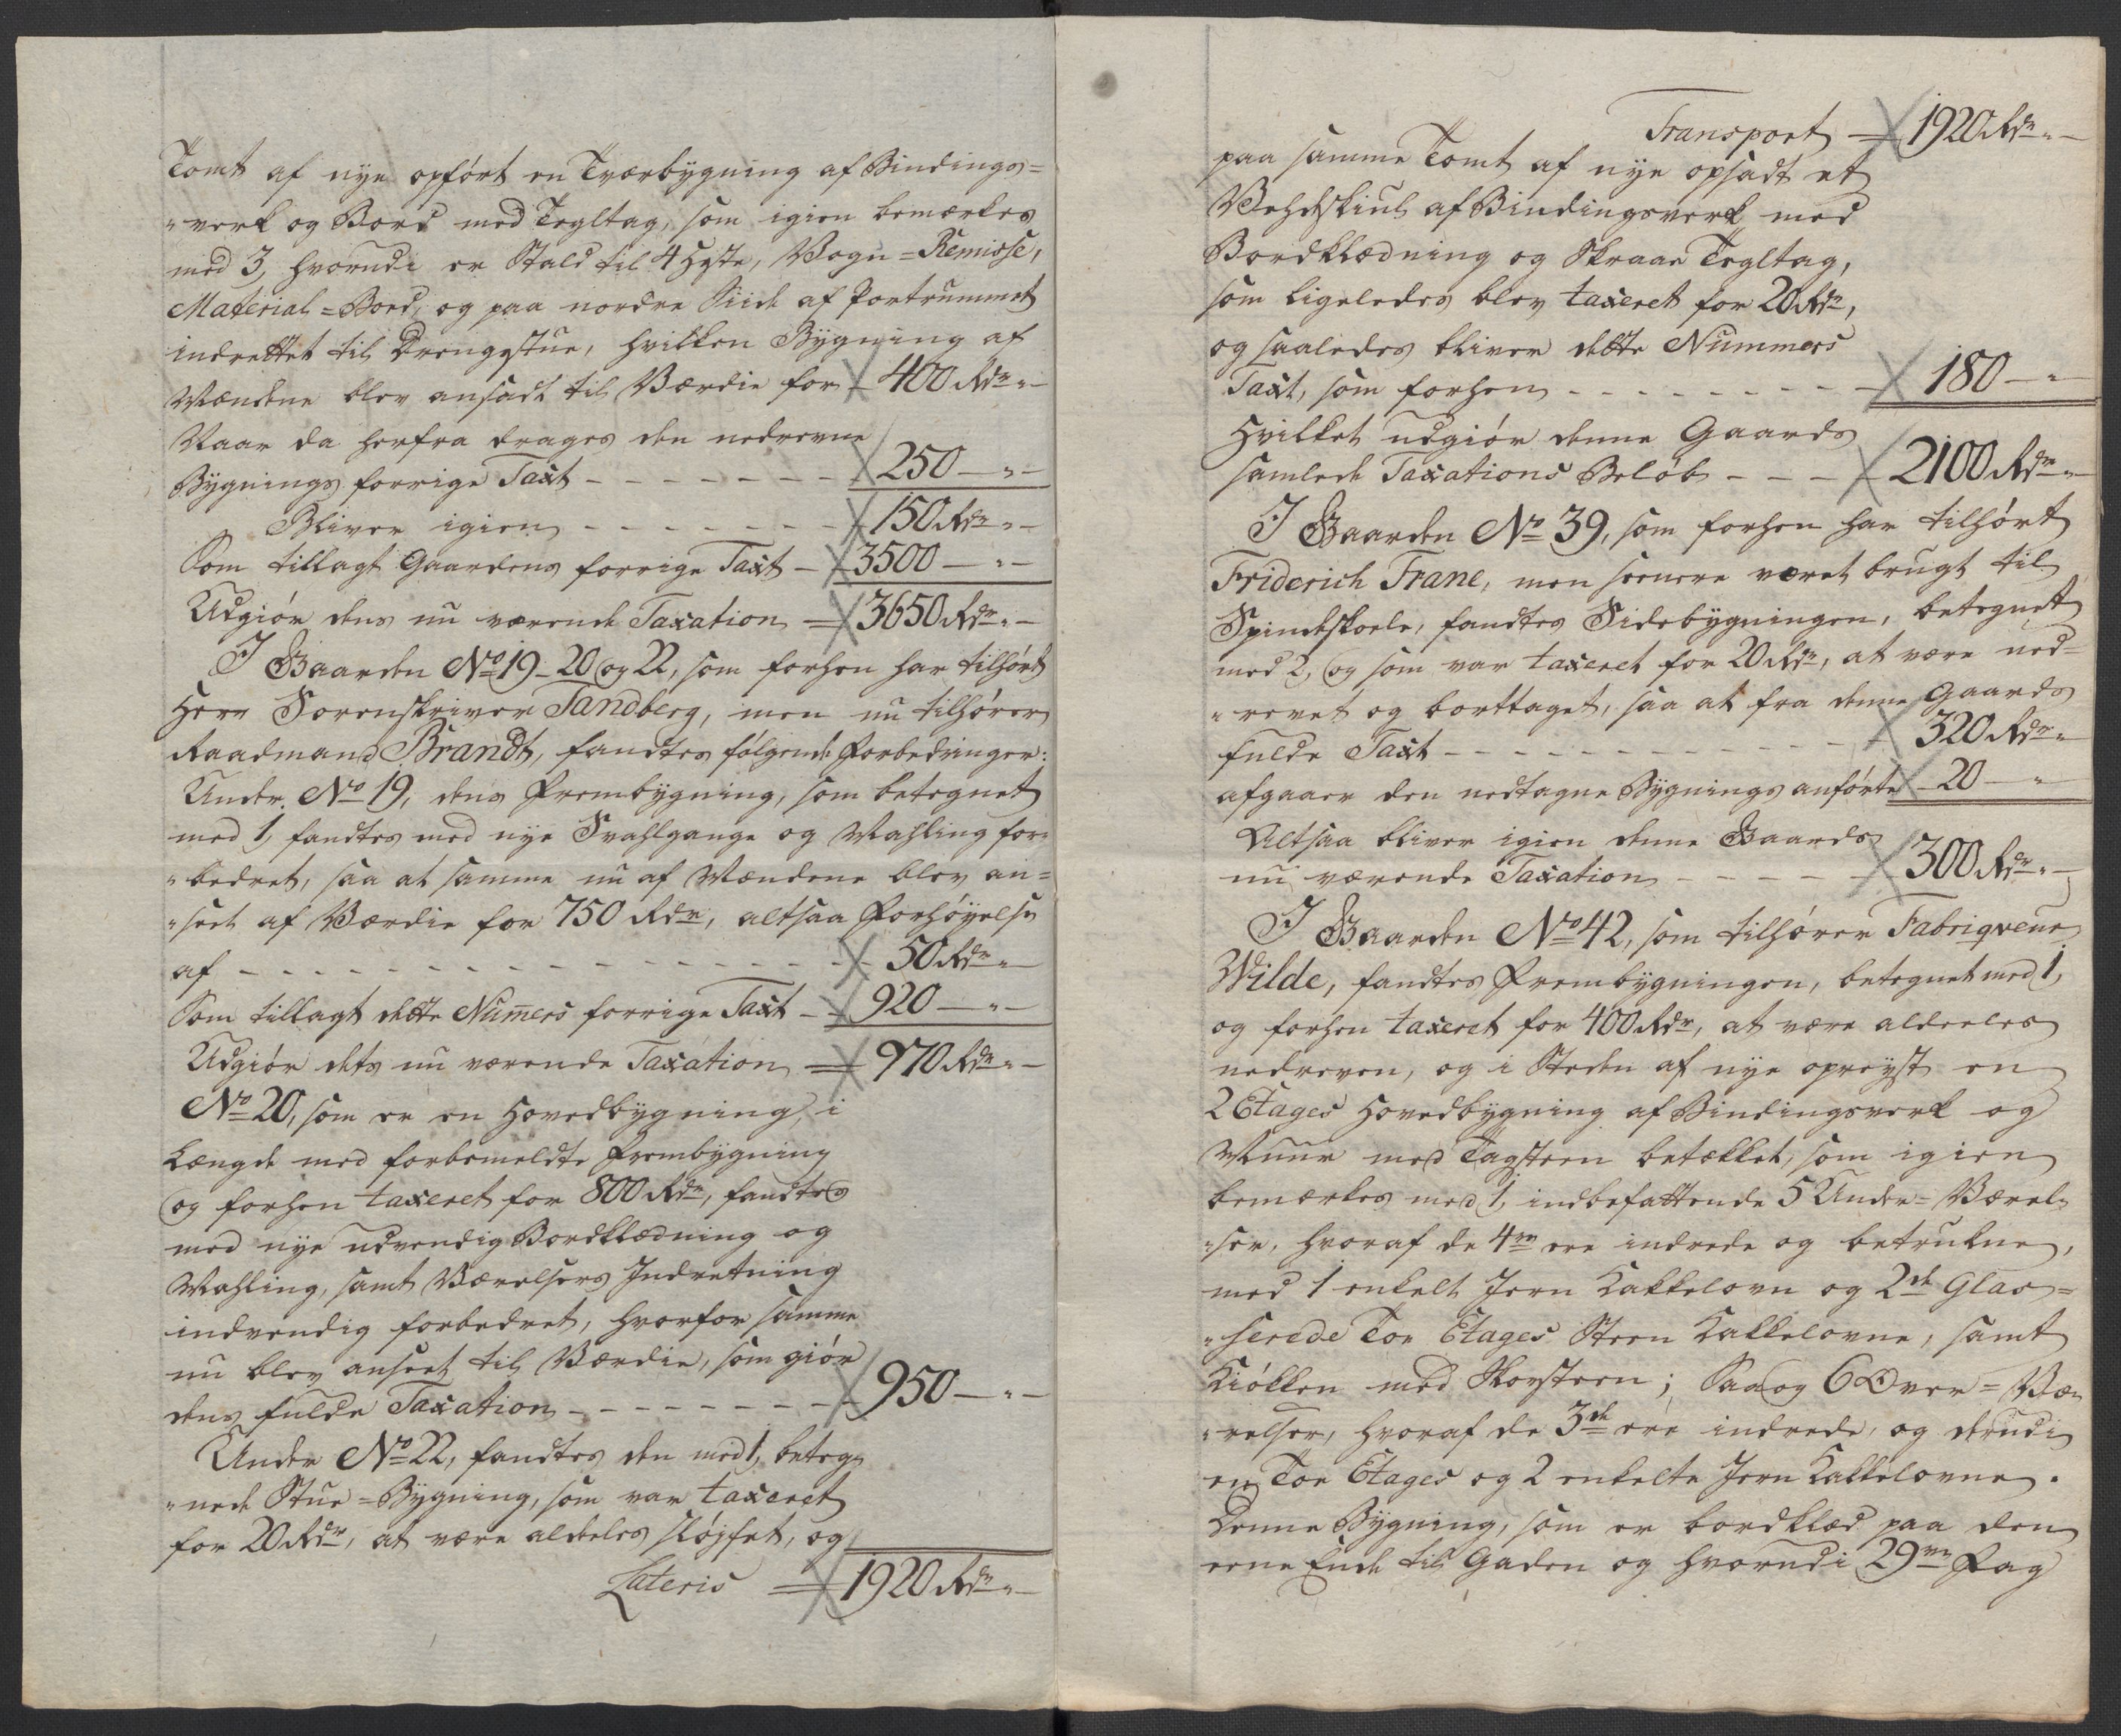 Tomt af nye opført en Tværbygning af Bindings=
"verk og Bord med Tegltag, som igien bemærkes
med 3, hvorudi er Stald til 4 Hæste, Vogn=Remisse,
Material=Bord, og paa nordre Siide af Portrummet
indrettet til Drengestue, hvilken Bygning af
Mændene blev ansadt til Værdie for 400 Rdr "
Naar da herfra drages den nedrevne
Bygnings forrige Taxt - - - - - - - 250 — " —
Bliver igien - - - - - - - 150 Rdr " —
Som tillagt Gaardens forrige Taxt — 3500 — " —
Udgiør dens nu værende Taxation = 3650 Rdr " —
I Gaarden No 19 - 20 og 22, som forhen har tilhørt
Herr Sorenskriver Sandberg, men nu tilhører
Raadmand Brandt, fandtes følgende Forbedringer:
Under No 19, dens Frembygning, som betegnet
med 1, fandtes med nye Svahlgange og Mahling for=
"bedret, saa at samme nu af Mændene blev an=
"seet af Værdie for 750 Rdr, altsaa Forhøyelse
af - - - - - - - - - - - - - - - 50 Rdr "
Som tillagt dette Numers forrige Taxt - 920 — " —
Udgiør dets nu værende Taxation = 970 Rdr " —
No 20, som er en Hovedbygning, i
Længde med forbemeldte Frembygning
og forhen taxeret for 800 Rdr, fandtes
med nye udvendig Bordklædning og
Mahling, samt Værelsers Indretning
indvendig forbedret, hvorfor samme
nu blev anseet til Værdie, som giør
dens fulde Taxation - - - - - - - - 950 — " —
Under No 22, fandtes den med 1, beteg=
"nede Stue=Bygning, som var taxeret
for 20 Rdr, at være aldeeles sløyfet, og
Lateris = 1920 Rdr " —
Transport = 1920 Rdr " —
paa samme Tomt af nye opsadt et
Vehdskiul af Bindingsverk med
Bordklædning og Skraae Tegltag,
som ligeledes blev taxeret for 20 Rdr,
og saaledes bliver dette Nummers
Taxt, som forhen - - - - - - - - 180 — "
Hvilket udgiør denne Gaards
samlede Taxations Beløb - - - 2100 Rdr "
I Gaarden No 39, som forhen har tilhørt
Friderich Frane, men seenere været brugt til
Spindeskoele, fandtes Sidebygningen, betegnet
med 2, og som var taxeret for 20 Rdr, at være ned=
"revet og borttaget, saa at fra denne Gaards
fulde Taxt - - - - - - - - - - - - 320 Rdr "
afgaaer den nedtagne Bygnings anførte 20 — "
Altsaa bliver igien denne Gaards
nu værende Taxation - - - - - 300 Rdr " —
I Gaarden No 42, som tilhører Fabriqveur
Wilde, fandtes Frembygningen, betegnet med 1,
og forhen taxeret for 400 Rdr, at være aldeeles
nedreven, og i Steden af nye opreyst en
2 Etages Hovedbygning af Bindingsverk og
Muur med Tagsteen betækket, som igien
bemærkes med 1, indbefattende 5 Under=Værel=
"ser, hvoraf de 4re ere indrede og betrukne,
med 1 enkelt Jern Kakkelovn og 2de Glas=
"serede Toe Etages Steen Kakkelovne, samt
Kiøkken med Skorsteen; Saa og 6 Over=Væ=
"relser, hvoraf de 3de ere indrede, og derudi
en Toe Etages og 2 enkelte Jern Kakkelovne.
Denne Bygning, som er bordklæd paa den
eene Ende til Gaden og hvorudi 29ve Fag